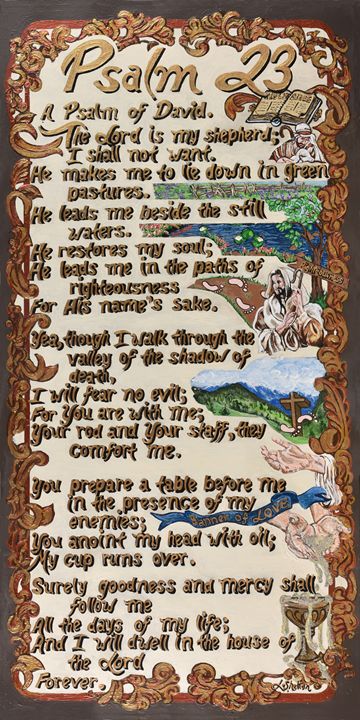 Psalm 23
A Psalm of David.
The Lord is my shepherd;
I shall not want.
He makes me to lie down in green
pastures.
He leads me beside the still
waters.
He restores my soul;
He leads me in the paths of
righteousness
For His name's sake.
Yea, though I walk through the
valley of the shadow of
death,
I will fear no evil;
For You are with me;
Your rod and Your staff, they
comfort me.
You prepare a table before me
in the presence of my
enemies;
Banner of Love
You anoint my head with oil;
My cup runs over.
Surely goodness and mercy shall
follow me
All the days of my life;
And I will dwell in the house of
the Lord
Forever.